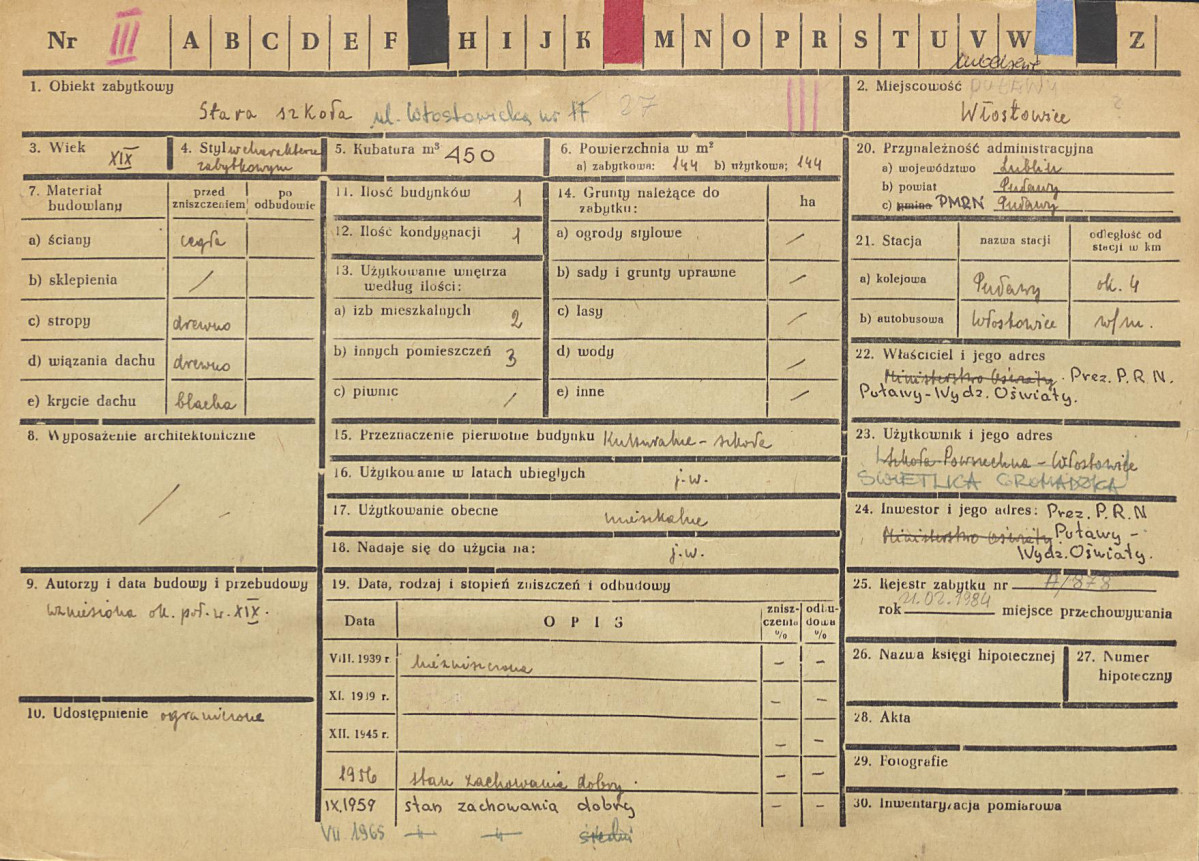 Nr III A B C D E F H I J K M N O P R S T U V W Z
1. Obiekt zabytkowy
Stara szkoła ul. Włostowicka nr 17 27
2. Miejscowość PUŁAWY
Włostowice
3. Wiek XIX
4. Styl w charakterze zabytkowym
5. Kubatura m³ 450
6. Powierzchnia w m²
a) zabytkowa: 144 b) użytkowa; 144
7. Materiał budowlany
przed zniszczeniem
po odbudowie
a) ściany cegła
b) sklepienia /
c) stropy drewno
d) wiązania dachu drewno
e) krycie dachu blacha
8. Wyposażenie architektoniczne
/ -
9. Autorzy i data budowy i przebudowy
wzniesiona ok. poł. w. XIX.
10. Udostępnienie ograniczone
11. Ilość budynków 1
12. Ilość kondygnacji 1
13. Użytkowanie wnętrza według ilości:
a) izb mieszkalnych 2
b) innych pomieszczeń 3
c) piwnic /
14. Grunty należące do zabytku: ha
a) ogrody stylowe /
b) sady i grunty uprawne /
c) lasy /
d) wody /
e) inne /
15. Przeznaczenie pierwotne budynku Kulturalne - szkoła
16. Użytkowanie w latach ubiegłych j.w.
17. Użytkowanie obecne mieszkalne
18. Nadaje się do użycia na: j.w.
19. Data, rodzaj i stopień zniszczeń i odbudowy
Data OPIS zniszczenia % odbudowa %
VIII. 1939 r. niezniszczona - -
XI. 1939 r. - -
XII. 1945 r. - -
1956 stan zachowania dobry. - -
IX.1959 stan zachowania dobry - -
VII 1965 -"- -"- średni
20. Przynależność administracyjna
a) województwo Lublin
b) powiat Puławy
c) gmina PMRN Puławy
21. Stacja
nazwa stacji
odległość od stacji w km
a) kolejowa Puławy ok. 4
b) autobusowa Włostowice w/m.
22. Właściciel i jego adres
Ministerstwo Oświaty. Prez. P.R.N.
Puławy-Wydz. Oświaty.
23. Użytkownik i jego adres
Szkoła Powszechna - Włostowice
ŚWIETLICA GROMADZKA
24. Inwestor i jego adres: Prez. P.R.N
Ministerstwo Oświaty Puławy -
Wydz. Oświaty.
25. Rejestr zabytku nr A/878
rok 21.02.1984 miejsce przechowywania
26. Nazwa księgi hipotecznej
27. Numer hipoteczny
28. Akta
29. Fotografie
30. Inwentaryzacja pomiarowa